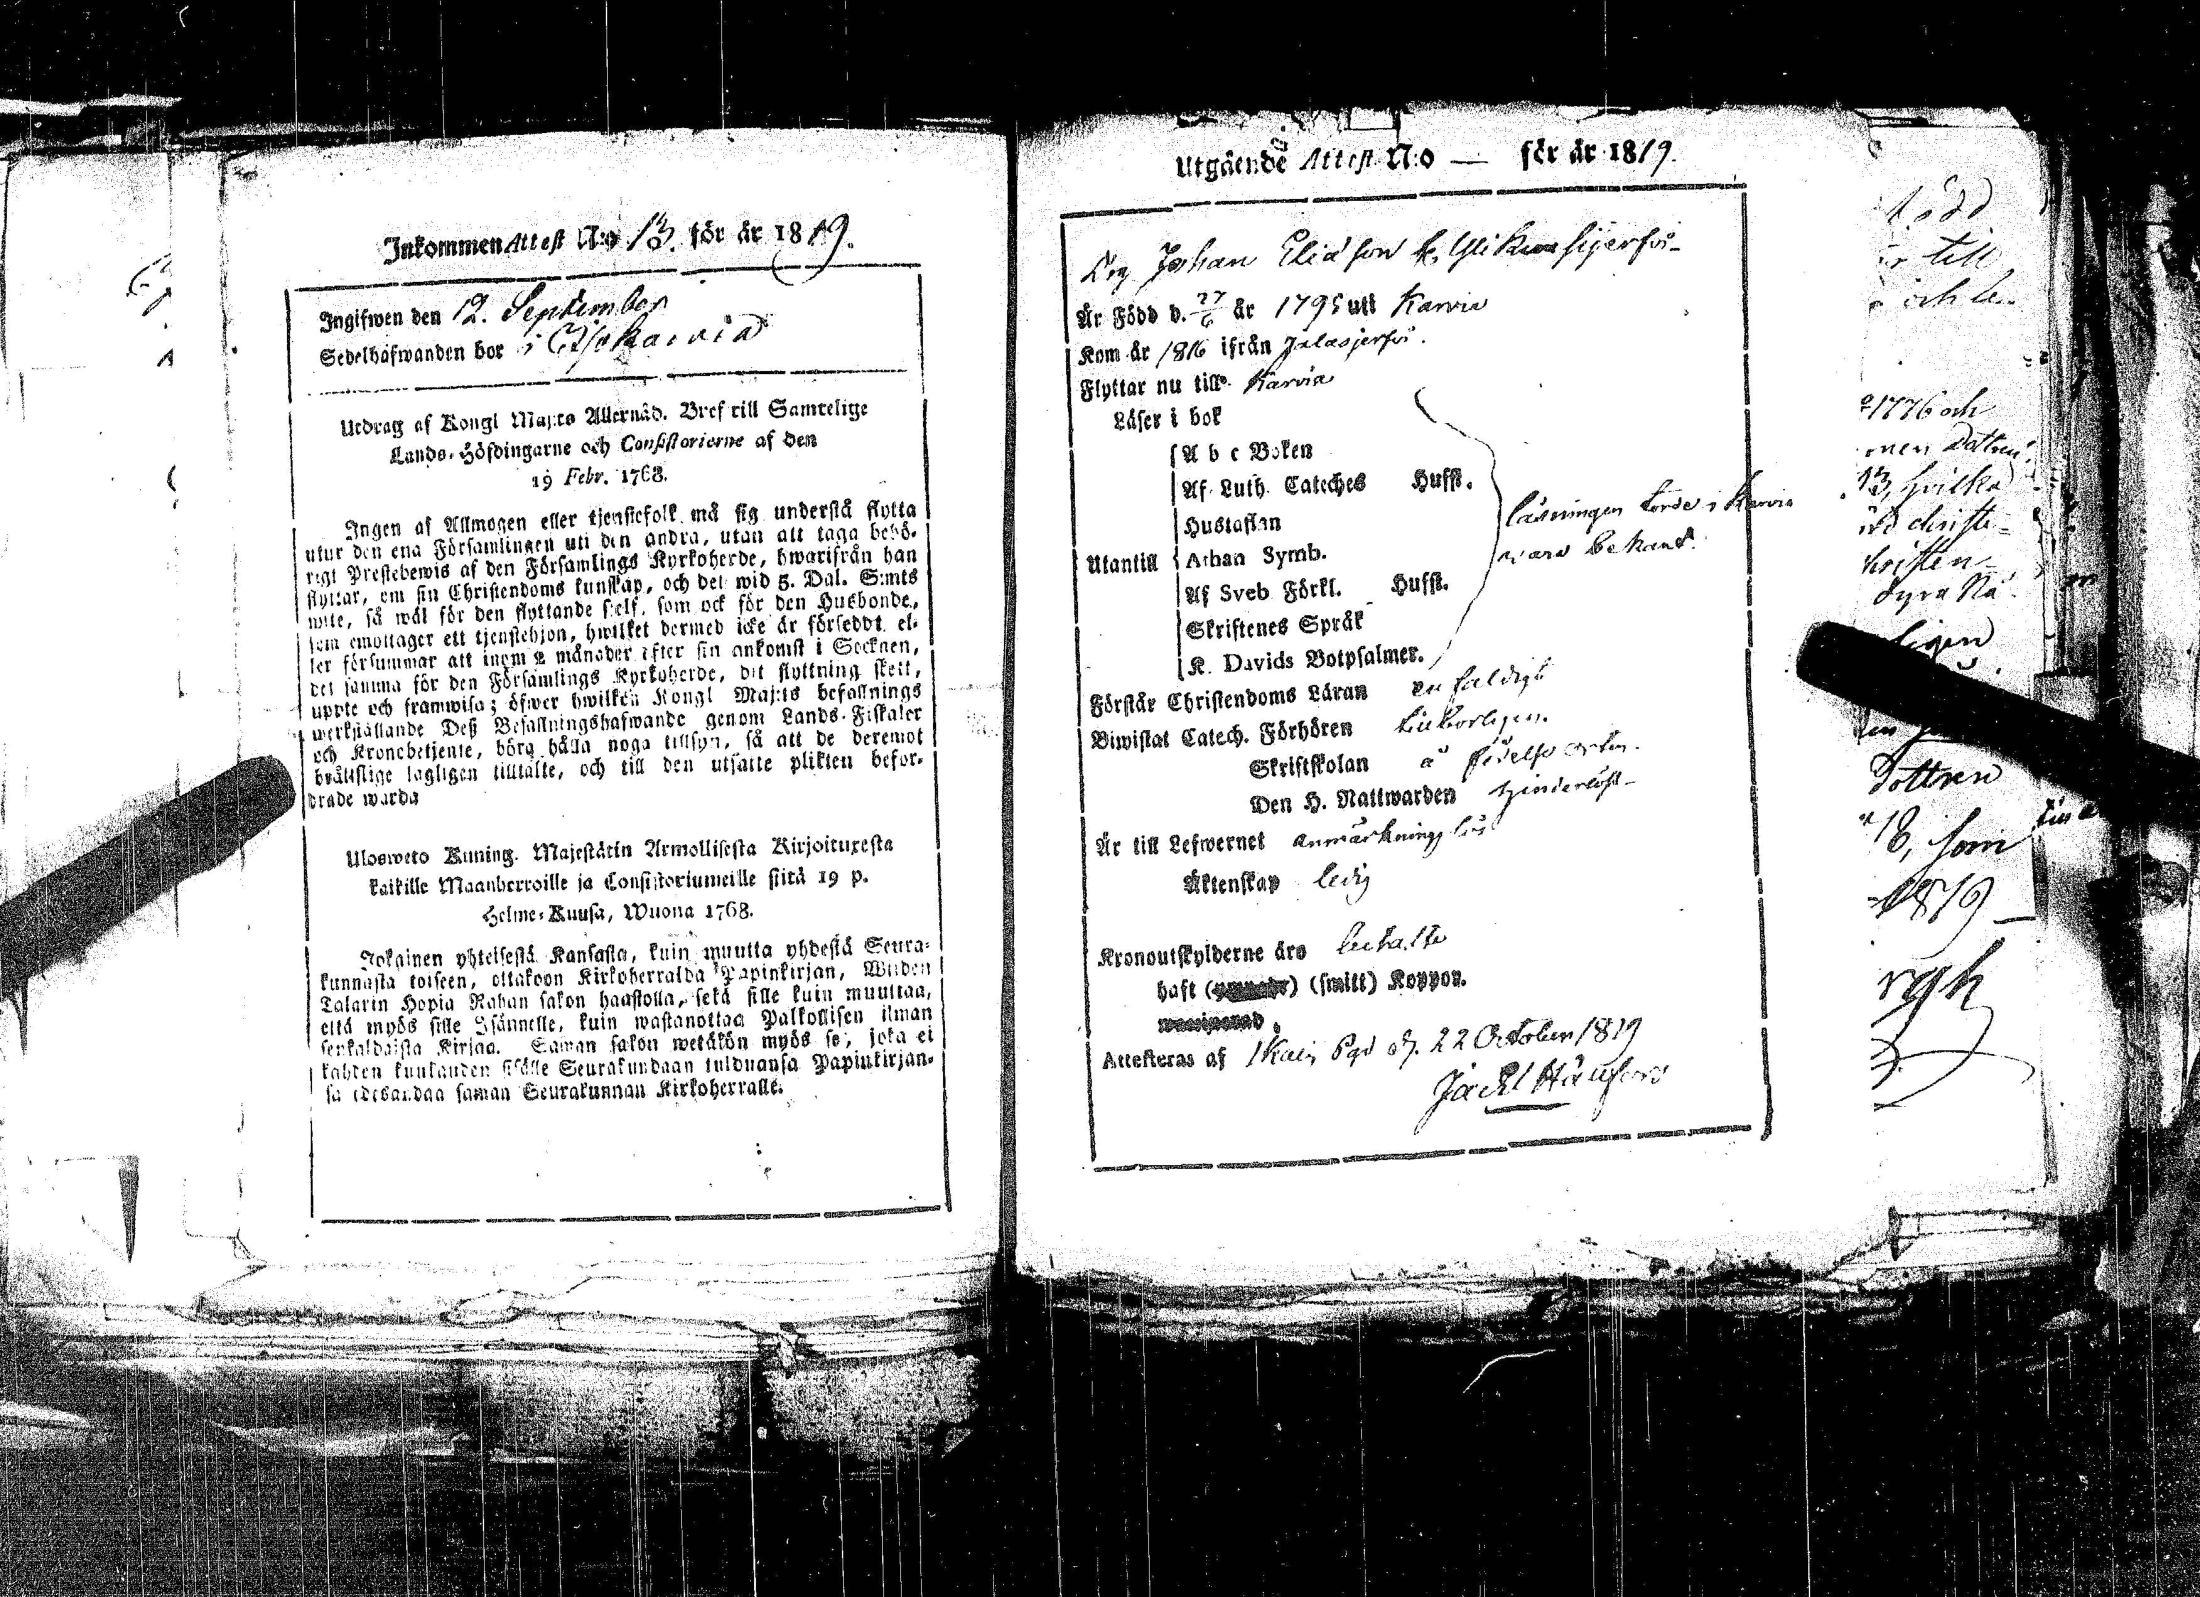 Inkommen Attest N:o 13. för år 1819.
Ingifwen den 12. September
Sedelhafwanden bor i
Utdrag af Kongl Maj:ts Allernåd. Bref till Samtelige
Lands-Höfdingarne och Consistorierne af den
19 Febr. 1768.
Ingen af Allmogen eller tjenstefolk må sig understå flytta
utur den ena Församlingen uti den andra, utan att taga behö-
rigt Prestebewis af den Församlings Kyrkoherde, hwarifrån han
flyttar, om sin Christendoms kunskap, och det wid 5. Dal. S:mts
wite, så wäl för den flyttande sjelf, som ock för den Husbonde,
som emottager ett tjenstehjon, hwilket dermed icke är försedt, el-
ler försummar att inom 2 månader efter sin ankomst i Socknen,
det samma för den Församlings Kyrkoherde, dit flyttning skett,
uppte och framwisa; öfwer hwilken Kongl Maj:ts befallnings
werkställande Deß Befallningshafwande genom Lands-Fiskaler
och Kronobetjente, böra hålla noga tillsyn, så att de deremot
bråttslige lagligen tilltalte, och till den utsatte plikten befor-
drade warda
Ulosweto Kuning. Majestätin Armollisesta Kirjoituxesta
kaikille Maanherroille ja Consistoriumeille siitä 19 p.
Helme-Kuusa, Wuona 1768.
Jokainen yhteisestä Kansasta, kuin muutta yhdestä Seura-
kunnasta toiseen, ottakoon Kirkoherralda Papinkirjan, Wiiden
Talarin Hopia Rahan sakon haastolla, sekä sille kuin muuttaa,
että myös sille Isännelle, kuin wastanottaa Palkollisen ilman
senkaldaista Kirjaa. Saman sakon wetäkön myös se, joka ei
kahden kuukauden sisälle Seurakundaan tulduansa Papinkirjan-
sa edesandaa saman Seurakunnan Kirkoherralle.
Utgående Attest N:o — för år 1819.
Dng Johan Eliä son
Är Född d. 27/6 år 1795 uti Karvia
Kom år 1816 ifrån Jalasjerfvi.
Flyttar nu till Karvia
Läser i bok
A b c Boken
Af Luth. Cateches Husst.
Hustaflan
Utantill Athan Symb.
läsningen torde i Karvia
vara bekant.
Af Sveb Förkl. Husst.
Skriftenes Språk
K. Davids Botpsalmer.
Förstår Christendoms Läran enfaldigt
Biwistat Catech. Förhören behörigen.
Skriftskolan å födelse orten.
Den H. Nattwarden hinderlöst
Är till Lefwernet anmärkningslös
Äktenskap ledig
Kronoutskylderne äro betalte
haft (smitt) Koppor.
Attesteras af Ikalis Pgd d. 22 October 1819
tödd
till
och le
1776 och
men Dottren
13, hvilka
christe-
ligen
Dottren
18, som
1819
rgh